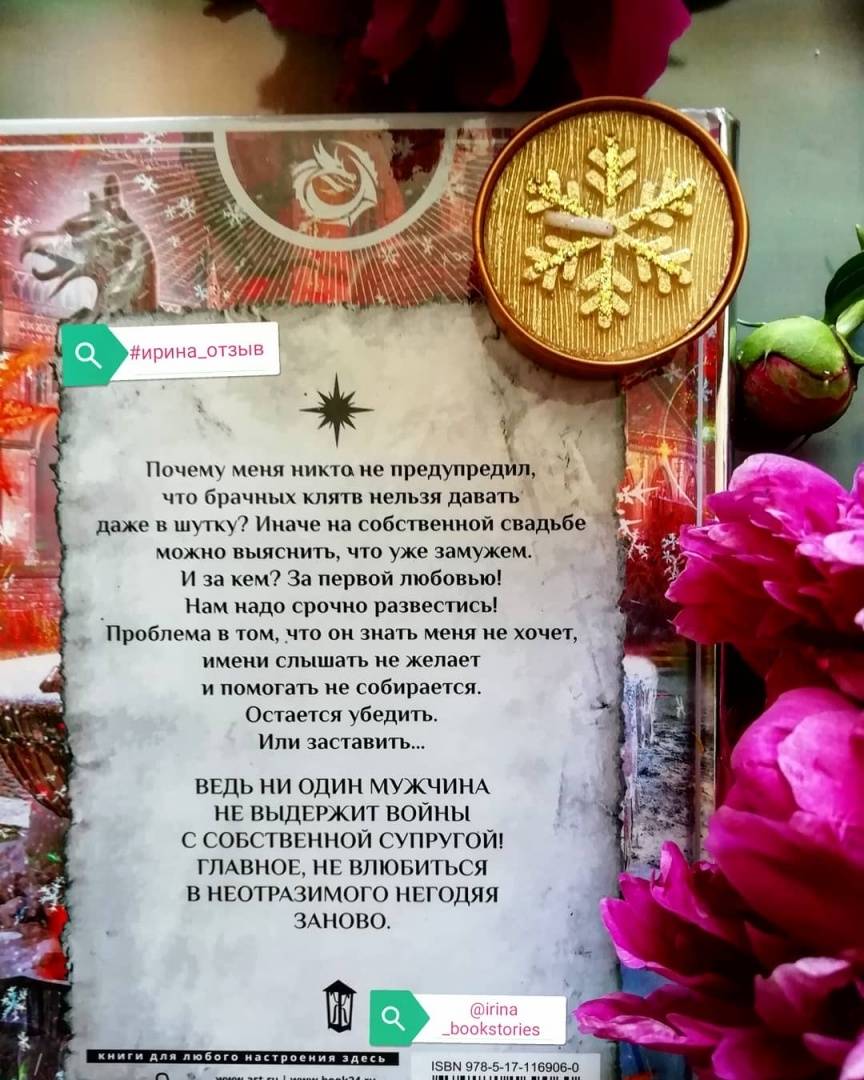 #ирина_отзыв
Почему меня никто не предупредил,
что брачных клятв нельзя давать
даже в шутку? Иначе на собственной свадьбе
можно выяснить, что уже замужем.
И за кем? За первой любовью!
Нам надо срочно развестись!
Проблема в том, что он знать меня не хочет,
имени слышать не желает
и помогать не собирается.
Остается убедить.
Или заставить...
ВЕДЬ НИ ОДИН МУЖЧИНА
НЕ ВЫДЕРЖИТ ВОЙНЫ
С СОБСТВЕННОЙ СУПРУГОЙ!
ГЛАВНОЕ, НЕ ВЛЮБИТЬСЯ
В НЕОТРАЗИМОГО НЕГОДЯЯ
ЗАНОВО.
@irina
_bookstories
книги для любого настроения здесь
ISBN 978-5-17-116906-0